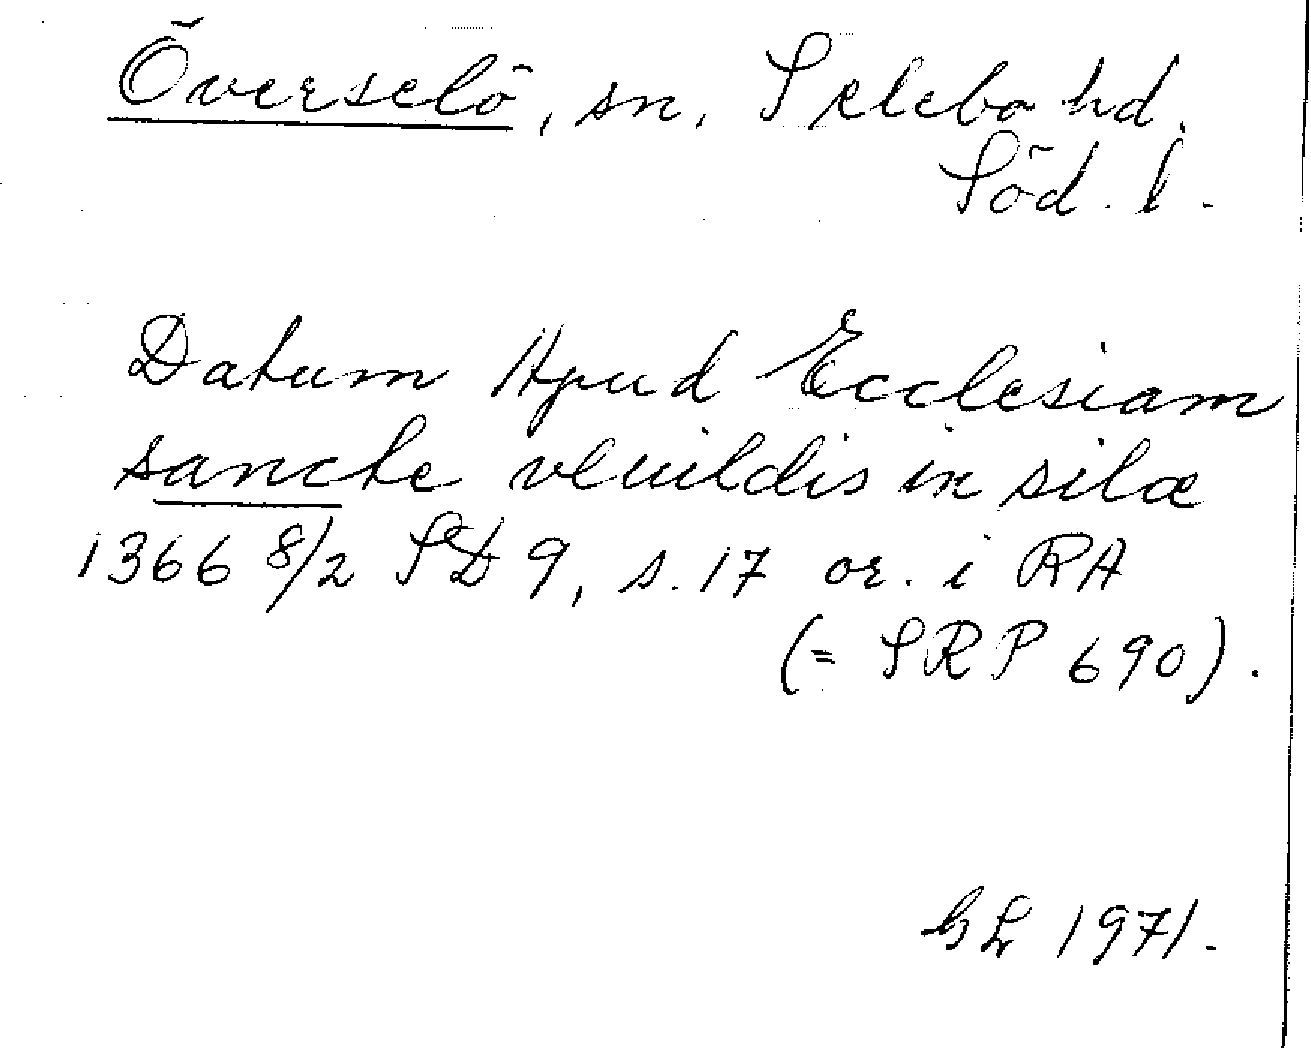 Överselö, sn, Selebo hd.
Söd. l.
Datum Apud Ecclesiam
sancte vluildis in silæ
1366 8/2 SD 9, s. 17 or. i RA
(= SRP 690).
GL 1971.